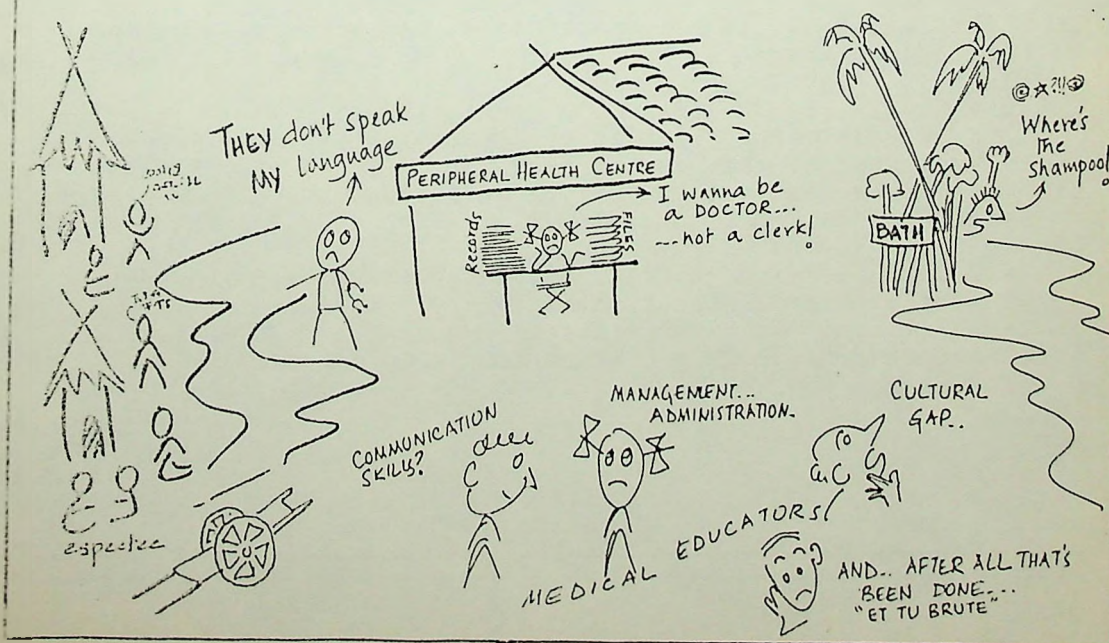 THEY don't speak
MY language
PERIPHERAL HEALTH CENTRE
Records
FILES
I wanna be
a DOCTOR...
---not a clerk!
@☆?!!@
Where's
the
Shampoo!
BATH
COMMUNICATION
SKILLS?
MANAGEMENT...
ADMINISTRATION.
CULTURAL
GAP..
MEDICAL EDUCATORS
AND.. AFTER ALL THAT'S
BEEN DONE....
"ET TU BRUTE"